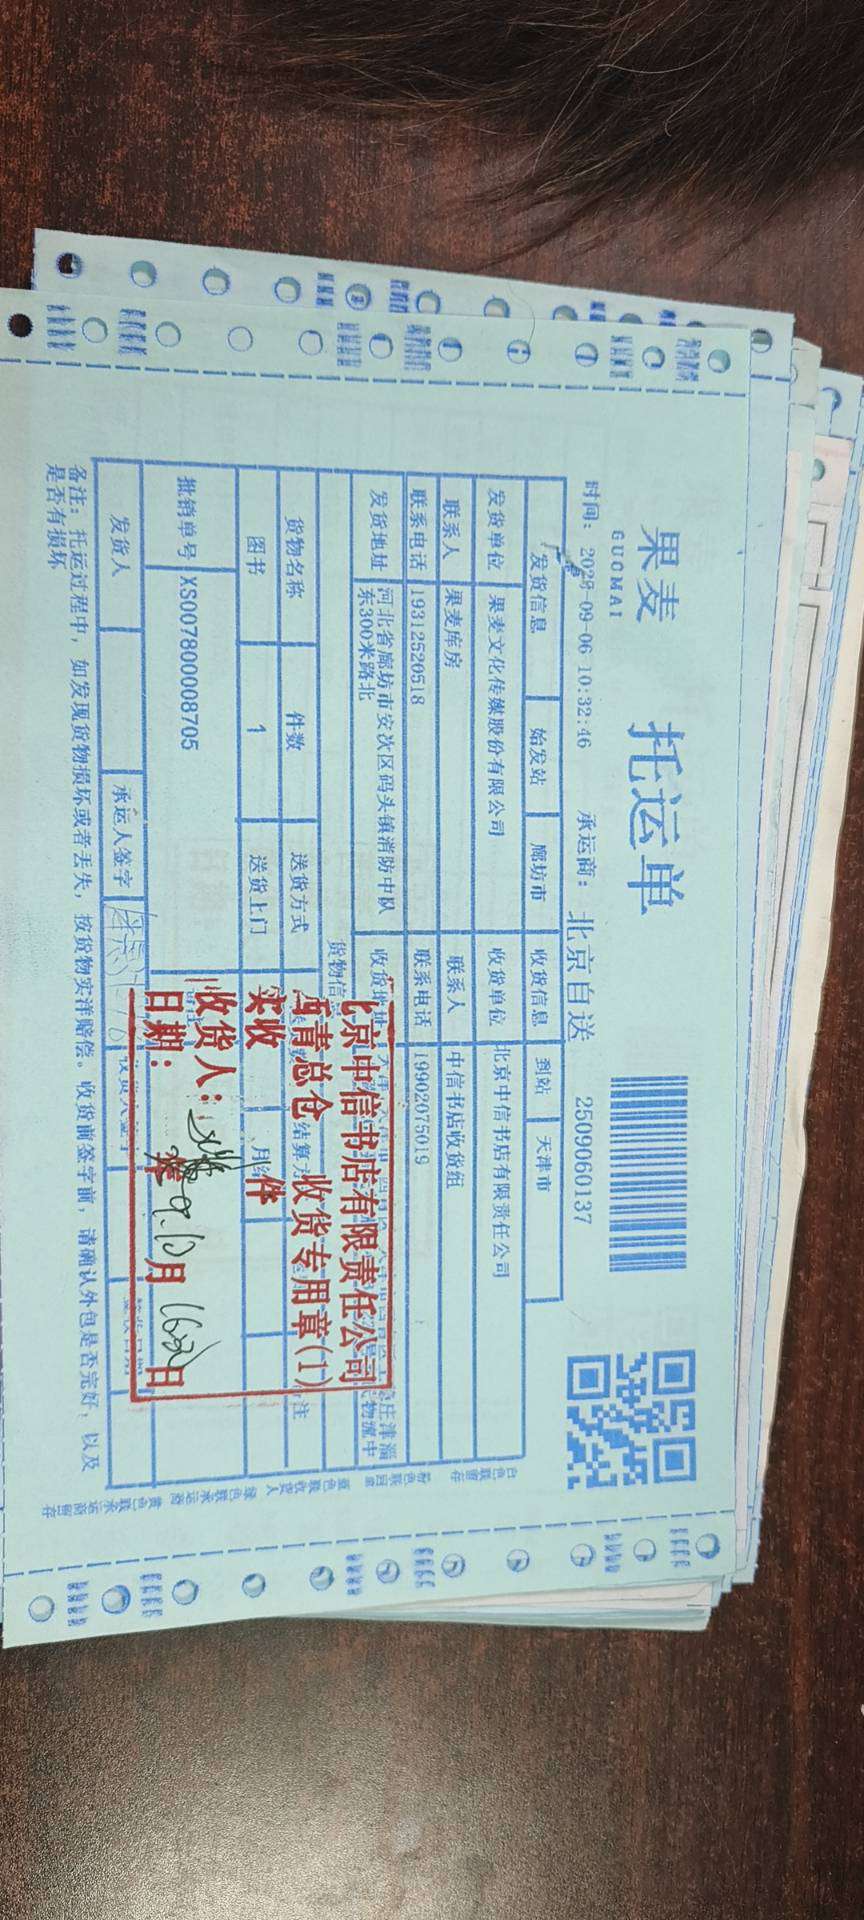 果麦
GUOMAI
托运单
时间: 2025-09-06 10:32:46 承运商: 北京自送 2509060137
发货信息 始发站 廊坊市 收货信息 到站 天津市
发货单位 果麦文化传媒股份有限公司 收货单位 北京中信书店有限责任公司
联系人 果麦库房 联系人 中信书店收货组
联系电话 19312520518 联系电话 19902075019
发货地址 河北省廊坊市安次区码头镇消防中队东300米路北 收货地址
货物信息
货物名称 件数 送货方式 结算方 备注
图书 1 送货上门 月结
批销单号 XS007800008705
发货人 承运人签字
备注: 托运过程中, 如发现货物损坏或者丢失, 按货物实洋赔偿。收货前签字前, 请确认外包是否完好, 以及是否有损坏
北京中信书店有限责任公司
西青总仓 收货专用章(1)
实收 件
收货人:
日期: 年 9.10月 日
白色联留存 粉色联回单 蓝色联收货人 绿色联承运商 黄色联承运商留存